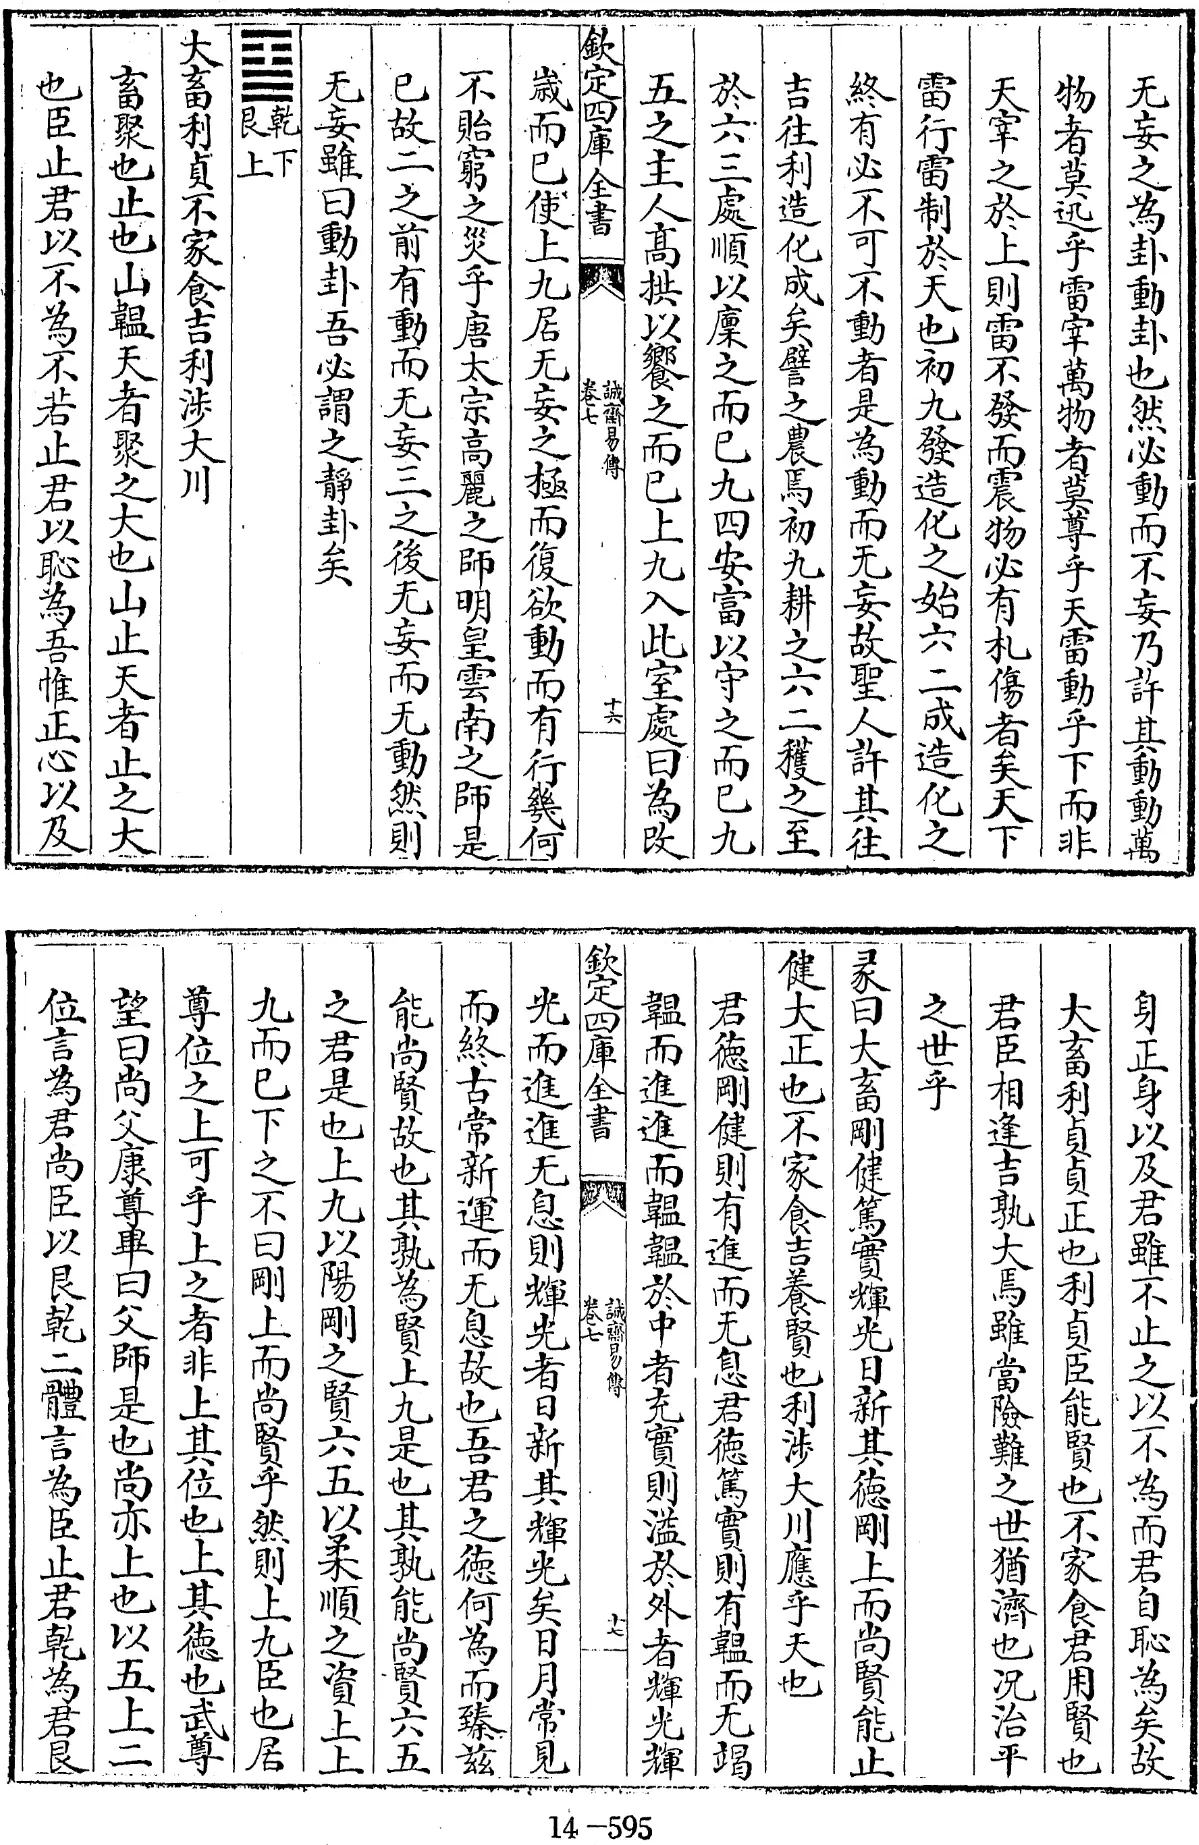 无妄之為卦動卦也然必動而不妄乃許其動動萬
物者莫迅乎雷宰萬物者莫尊乎天雷動乎下而非
天宰之於上則雷不發而震物必有札傷者矣天下
雷行雷制於天也初九發造化之始六二成造化之
終有必不可不動者是為動而无妄故聖人許其往
吉往利造化成矣譬之農焉初九耕之六二穫之至
於六三處順以廩之而已九四安富以守之而已九
五之主人高拱以饗之而已上九入此室處曰為改
欽定四庫全書
誠齋易傳
卷七
十六
歲而已使上九居无妄之極而復欲動而有行幾何
不貽窮之災乎唐太宗高麗之師明皇雲南之師是
已故二之前有動而无妄三之後无妄而无動然則
无妄雖曰動卦吾必謂之靜卦矣
䷙
乾下
艮上
大畜利貞不家食吉利涉大川
畜聚也止也山韞天者聚之大也山止天者止之大
也臣止君以不為不若止君以恥為吾惟正心以及
身正身以及君雖不止之以不為而君自恥為矣故
大畜利貞貞正也利貞臣能賢也不家食君用賢也
君臣相逢吉孰大焉雖當險難之世猶濟也况治平
之世乎
彖曰大畜剛健篤實輝光日新其德剛上而尚賢能止
健大正也不家食吉養賢也利涉大川應乎天也
君德剛健則有進而无息君德篤實則有韞而无竭
韞而進進而韞韞於中者充實則溢於外者輝光輝
欽定四庫全書
誠齋易傳
卷七
十七
光而進進无息則輝光者日新其輝光矣日月常見
而終古常新運而无息故也吾君之德何為而臻兹
能尚賢故也其孰為賢上九是也其孰能尚賢六五
之君是也上九以陽剛之賢六五以柔順之資上上
九而已下之不曰剛上而尚賢乎然則上九臣也居
尊位之上可乎上之者非上其位也上其德也武尊
望曰尚父康尊畢曰父師是也尚亦上也以五上二
位言為君尚臣以艮乾二體言為臣止君乾為君艮
14-595